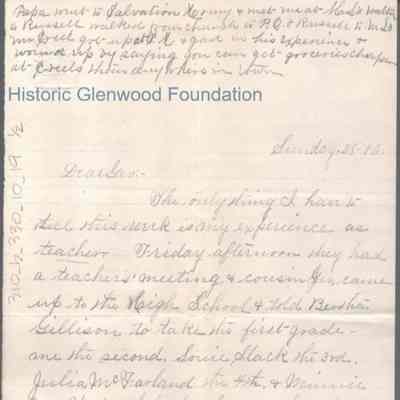 Papa went to Salvation Army & met me at
& Russell walked from church to P.O. & Russell to
Mr Creel got up & in his experience &
wound up by saying you can get groceries cheaper
at Creels than anywhere in town
Historic Glenwood Foundation
310_b_330_10_19 1/2
Sunday
Dear
The only thing I have to
tell this week is my experience as
teacher. Friday afternoon they had
a teachers' meeting & cousin Jim came
up to the High School & told
Gillison to take the first grade -
me the second, Mack the 3rd.
Julia McFarland the 4th, & Minnie